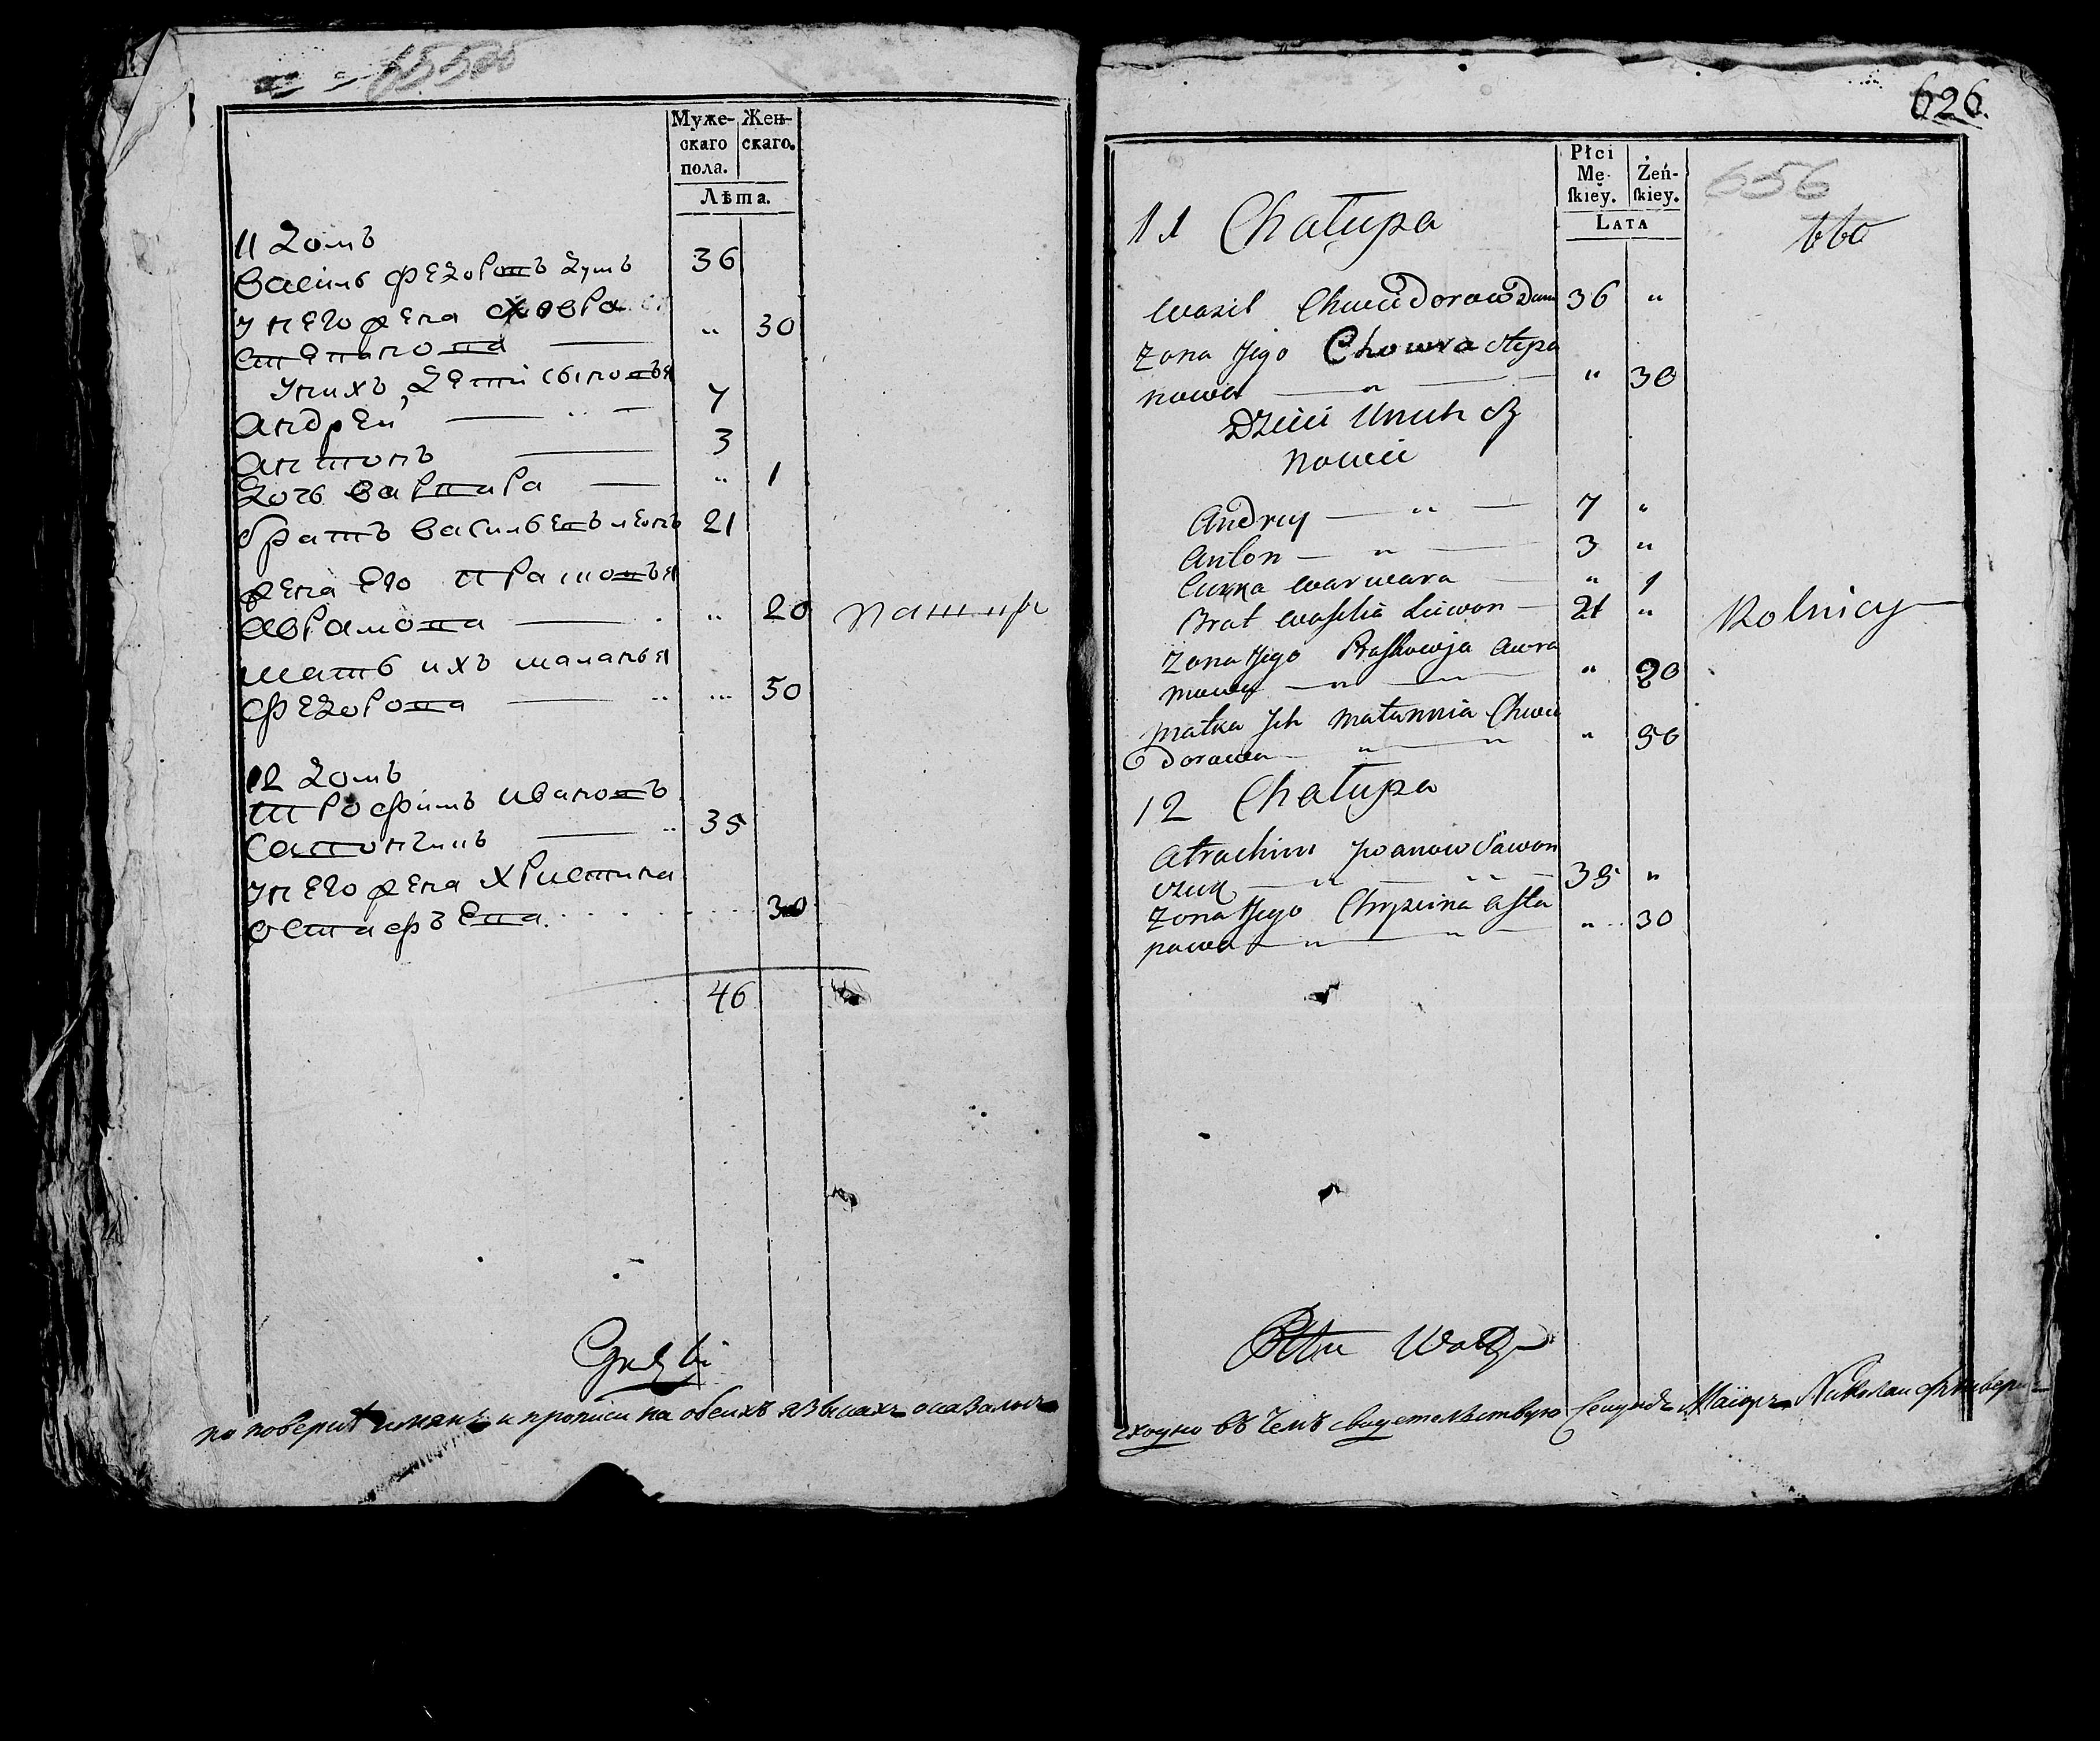 Муже-
скаго
пола.
Жен-
скаго.
Лѣта.
11 Домъ
Василь Федоровъ Думъ 36
У него жена Ховра
Степанова „ 30
У нихъ дети сыновья
Андрей 7
Антонъ 3
Дочь Варвара „ 1
братъ Васильевъ Леонъ 21
жена Его Прасковья
Аврамова „ 20 пашни
мать ихъ маланья
Федорова „ 50
12 Домъ
Трофимъ Ивановъ
Савончикъ 35
У него жена Христина
Остафъева 30
46
по поверке имянъ и прописи на обеихъ языкахъ оказалось
626.
656
Płci
Mę-
skiey.
Żeń-
skiey.
LATA
11 Chałupa
Wasil Chwiedorow Dum 36 „
Zona Jego Chowra Stepa
nowa „ 30
Dzieci Unich Sy
nowie
Andrey 7 „
Anton 3 „
Curka Warwara „ 1
Brat Wasila Liewon 21 „
Rolnicy
Zona Jego Praskowja Awra
mowa „ 20
Matka Jch Małannia Chwie
dorowa „ 50
12 Chałupa
Atrachim Jwanow Sawon
czuk 35 „
Zona Jego Chrystina Asta
powa „ 30
сходно въ чемъ свидетельствую Секундъ Маiоръ Николай